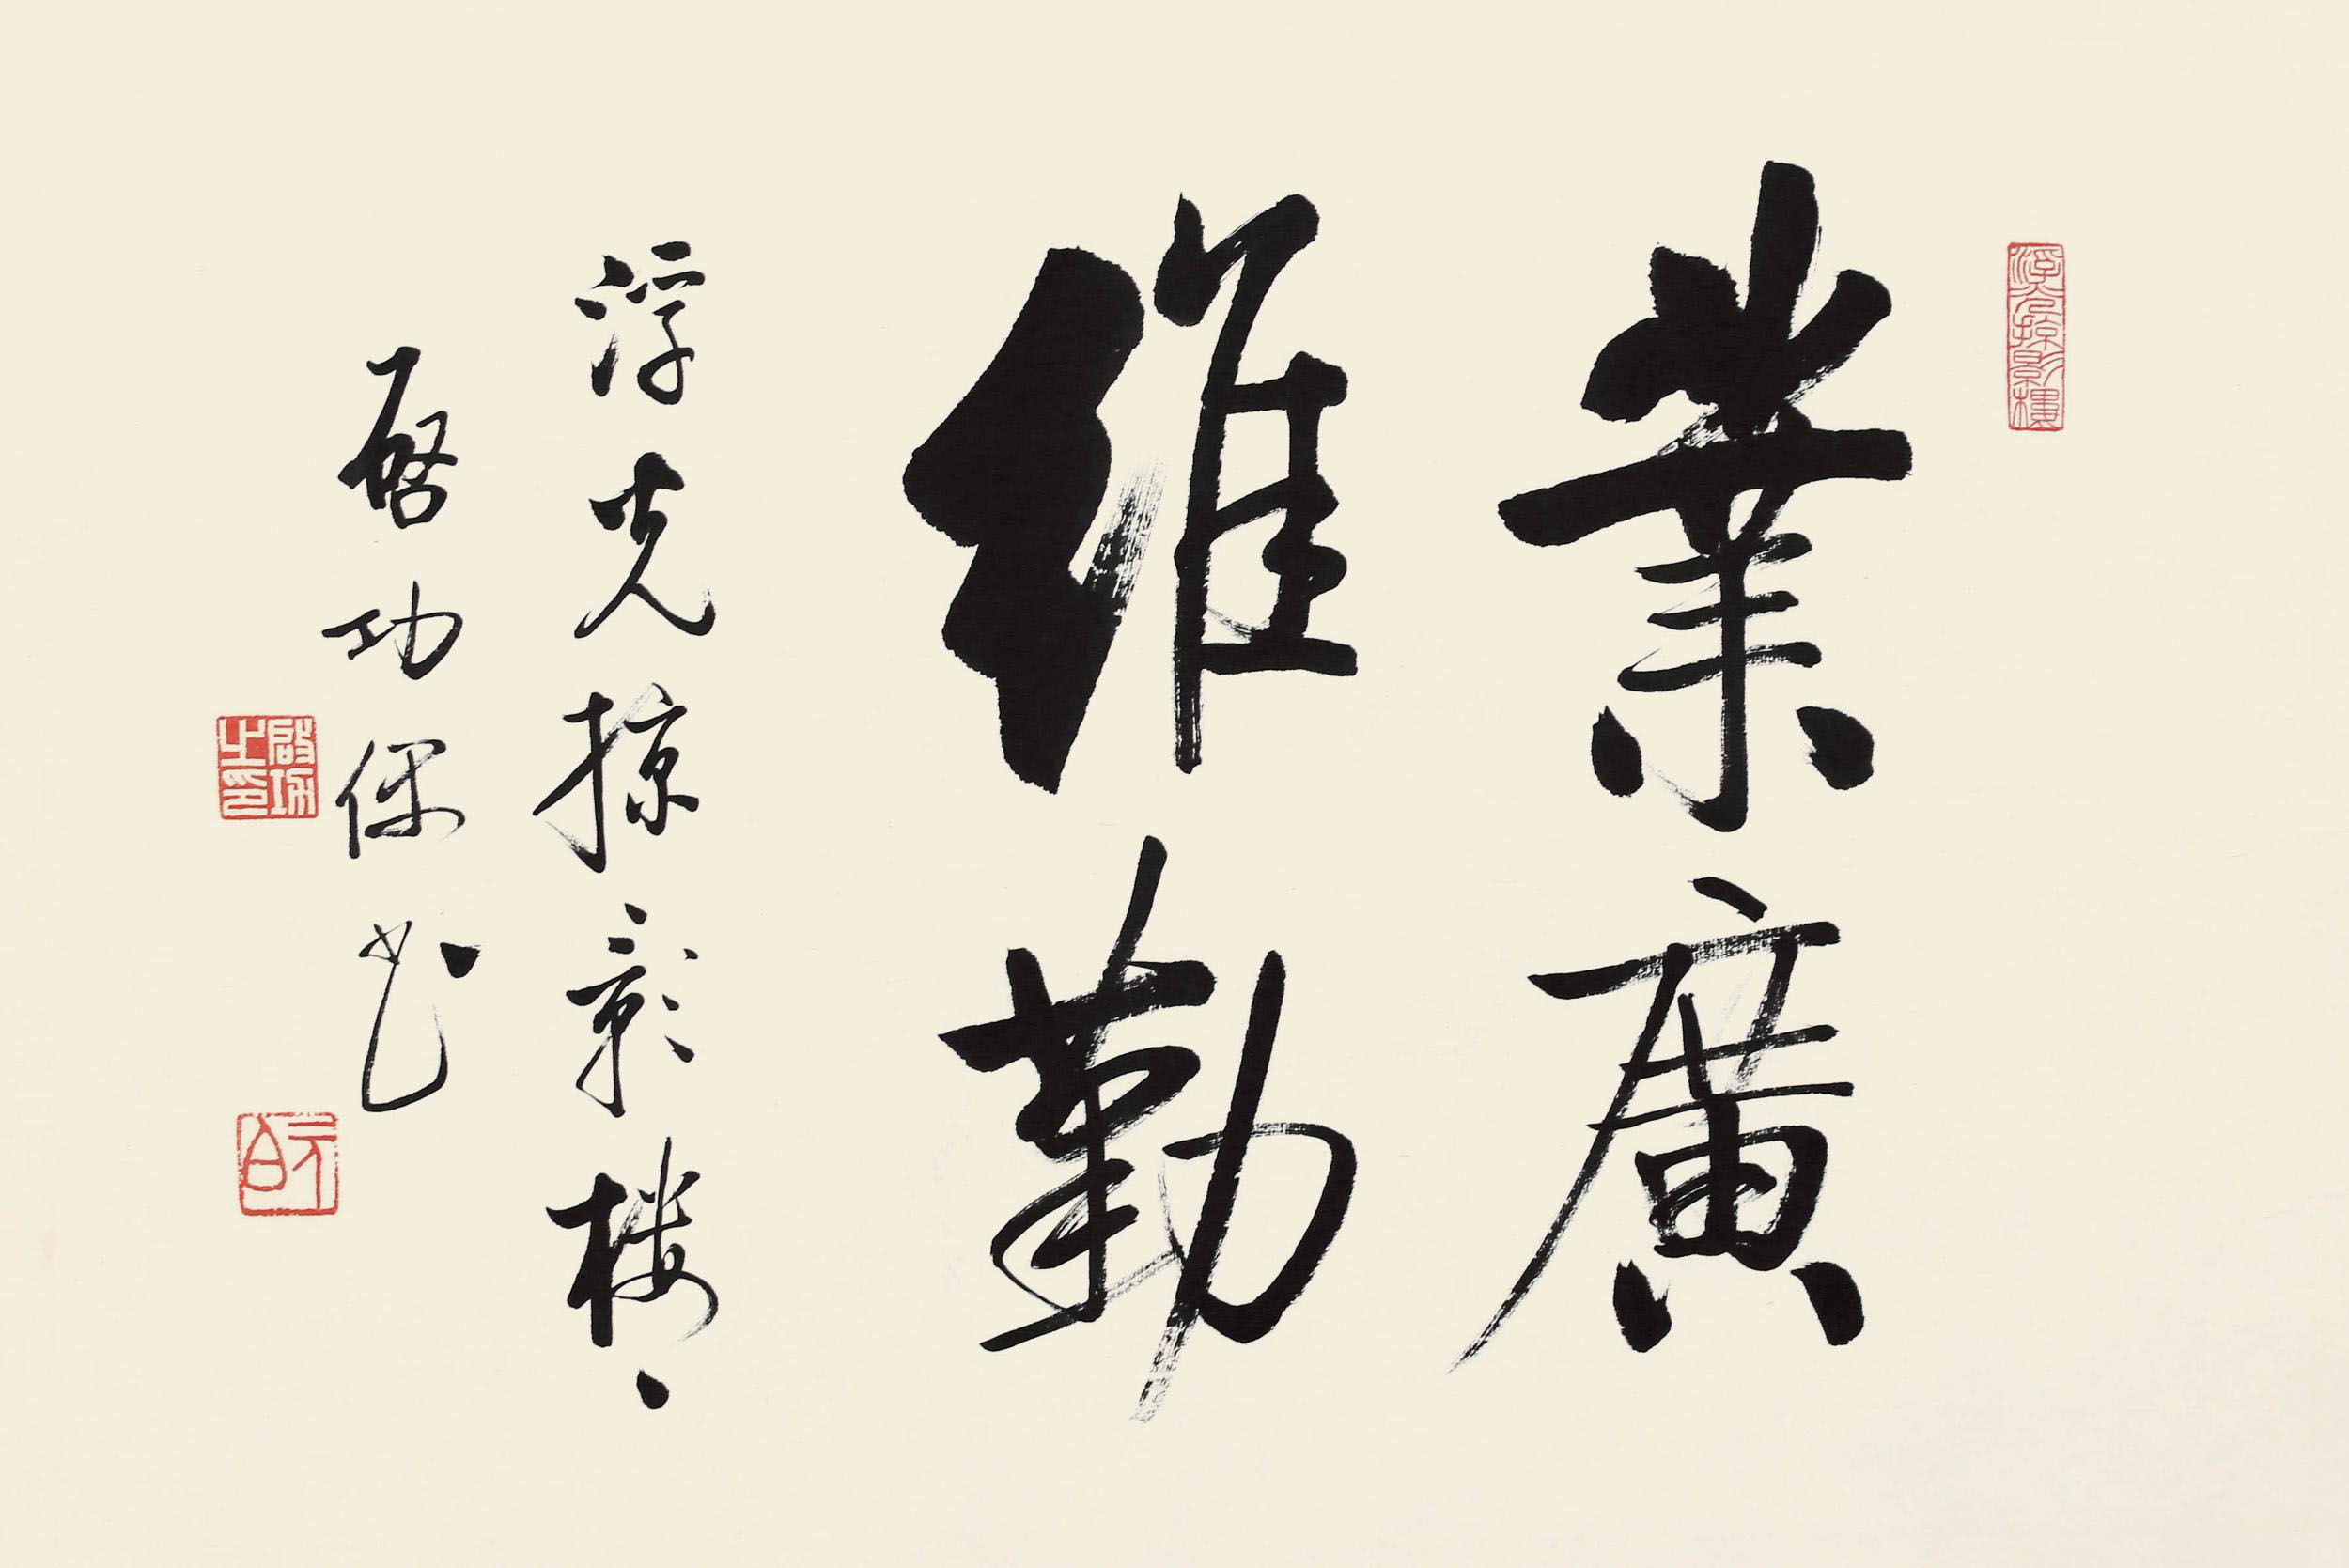 業廣
維勤
浮光掠影樓、
啓功保书
浮光掠影樓
啟功之印
元白